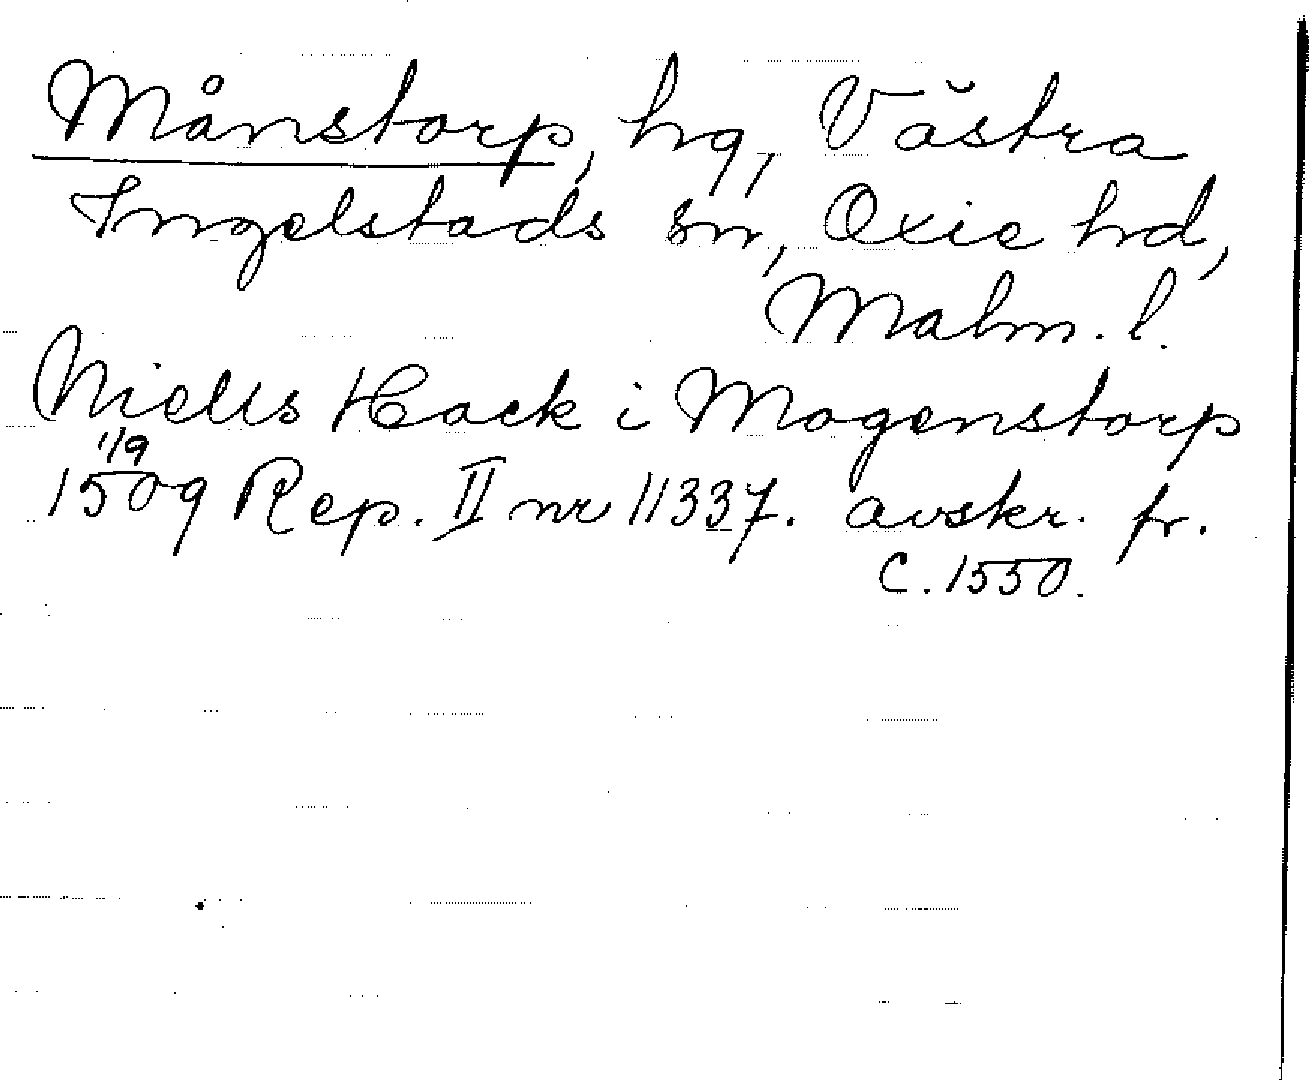 Månstorp, hg, Västra
Ingelstads sn, Oxie hd,
Malm. l.
Niells Hack i Mogenstorp
1/9
1509 Rep. II nr 11337. avskr. fr.
c. 1550.